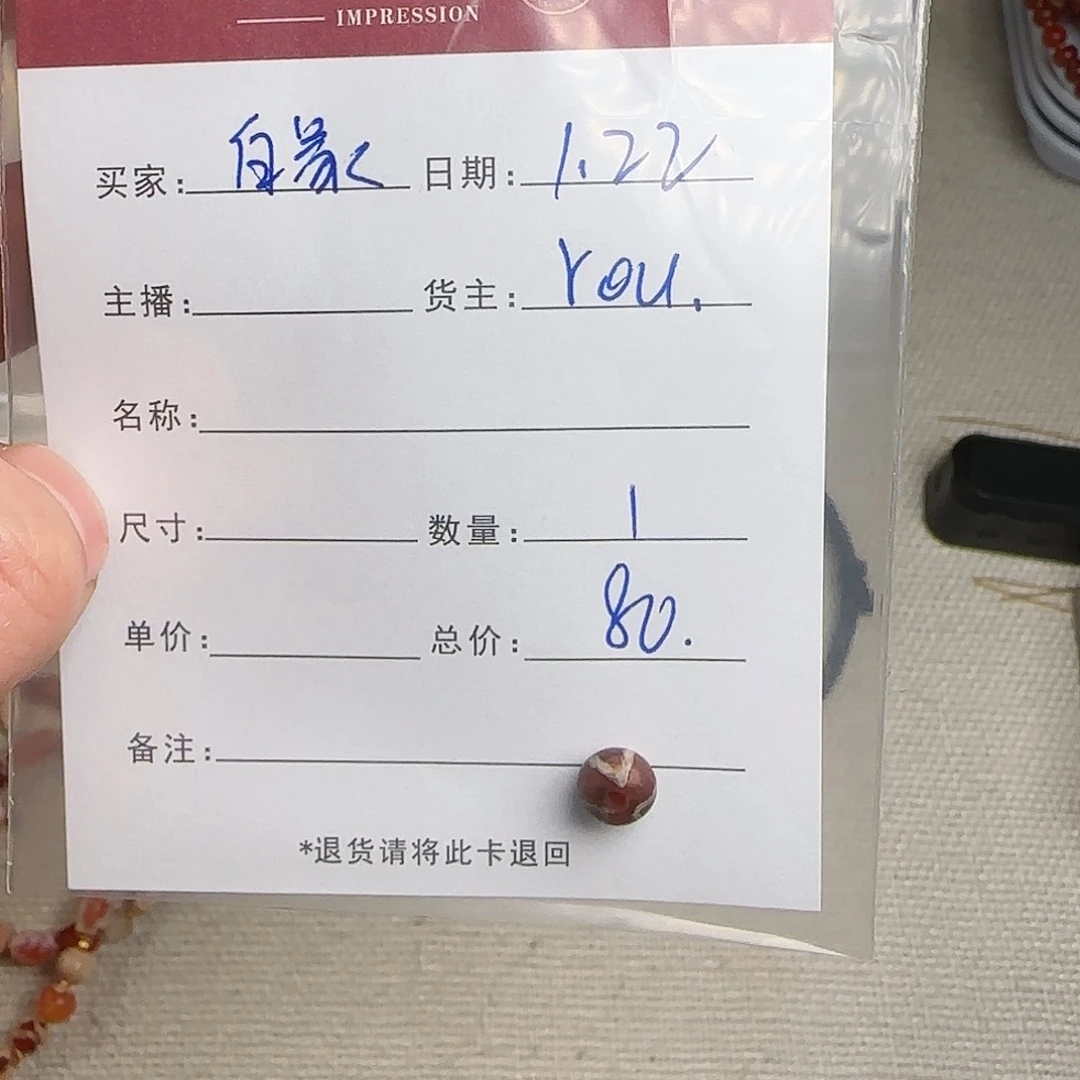 IMPRESSION
买家: 日期: 1.22
主播: 货主: You.
名称:
尺寸: 数量: 1
单价: 总价: 80.
备注:
*退货请将此卡退回